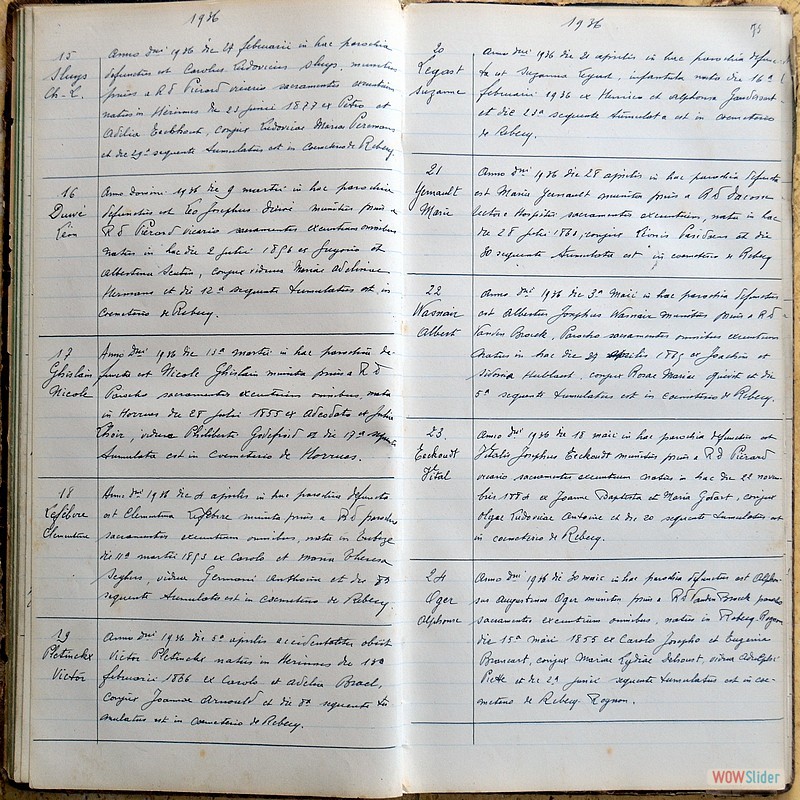 1936
15
Sluys
Ch-L.
Anno dni 1936 die 27 februarii in hac parochia
defunctus est Carolus Ludovicus Sluys, munitus
prius a R d Piérard vicario sacramentis exeuntium
natus in Herinnes die 23 junii 1877 ex Petro et
Adelia Eeckhout, conjux Ludovicae Mariae
et die 29a sequente tumulatus est in coemeterio de Rebecq.
16
Duivé
Léon
Anno domini 1936 die 9 martii in hac parochia
defunctus est Leo Josephus Duivé munitus prius a
R d Piérard vicario sacramentis exeuntium omnibus
natus in hac die 2 julii 1856 ex et
Albertina, conjux viduus Mariae Adelinae
Hermans et die 12a sequente tumulatus est in
coemeterio de Rebecq.
17
Ghislain
Nicole
Anno dni 1936 die 15a martii in hac parochia de-
functa est Nicole Ghislain munita prius a R d
Parocho sacramentis exeuntium omnibus, nata
in Horrues die 28 julii 1855 ex Adeodato et
vidua Philiberti Godefroid et die 17a sequente
tumulata est in coemeterio de Horrues.
18
Lefèbvre
Clémentine
Anno dni 1936 die 4 aprilis in hac parochia defuncta
est Clementina Lefèbvre munita prius a R d parocho
sacramentis exeuntium omnibus, nata in
die 11a martii 1853 ex Carolo et Maria Theresa
Seghers, vidua Germani Anthoine et die 8a
sequente tumulata est in coemeterio de Rebecq.
19
Pletinckx
Victor
Anno dni 1936 die 5a aprilis accidentaliter obiit
Victor Pletinckx natus in Herinnes die 18a
februarii 1866 ex Carolo et Adelia Brael,
conjux Joannae Arnould et die 8a sequente tu-
mulatus est in coemeterio de Rebecq.
1936
75
20
Legast
Suzanne
Anno dni 1936 die 21 aprilis in hac parochia defunc-
ta est Suzanna Legast, infantula nata die 16a
februarii 1936 ex Henrico et Alphonsa
et die 23a sequente tumulata est in coemeterio
de Rebecq.
21
Gernault
Marie
Anno dni 1936 die 28 aprilis in hac parochia defuncta
est Maria Gernault munita prius a R d
rectore Hospitii sacramentis exeuntium, nata in hac
die 28 julii 1860, conjux et die
30 sequente tumulata est in coemeterio de Rebecq
22
Wasnair
Albert
Anno dni 1936 die 3a Maii in hac parochia defunctus
est Albertus Josephus Wasnair munitus prius a R d
Vanden Broeck, Parocho sacramentis omnibus exeuntium
natus in hac die aprilis 1865 ex Joachim et
Sidonia, conjux Rosae Mariae et die
5a sequente tumulatus est in coemeterio de Rebecq.
23
Eeckoudt
Vital
Anno dni 1936 die 18 maii in hac parochia defunctus est
Vitalis Josephus Eeckoudt munitus prius a R d Piérard
vicario sacramentis exeuntium natus in hac die 22 novem-
bris 1884 ex Joanne Baptista et Maria Gotart, conjux
Olgae Ludovicae Antoine et die 20 sequente tumulatus est
in coemeterio de Rebecq.
24
Oger
Alphonse
Anno dni 1936 die 30 maii in hac parochia defunctus est Alphon-
sus Augustinus Oger munitus prius a R d Vanden Broeck parocho
sacramentis exeuntium omnibus, natus in Rebecq Rognon
die 15a maii 1855 ex Carolo Josepho et Eugenia
Brancart, conjux Mariae Lydiae Deboust, vidua Adolphi
Piette et die 2a junii sequente tumulatus est in coe-
meterio de Rebecq-Rognon.
WOWSlider